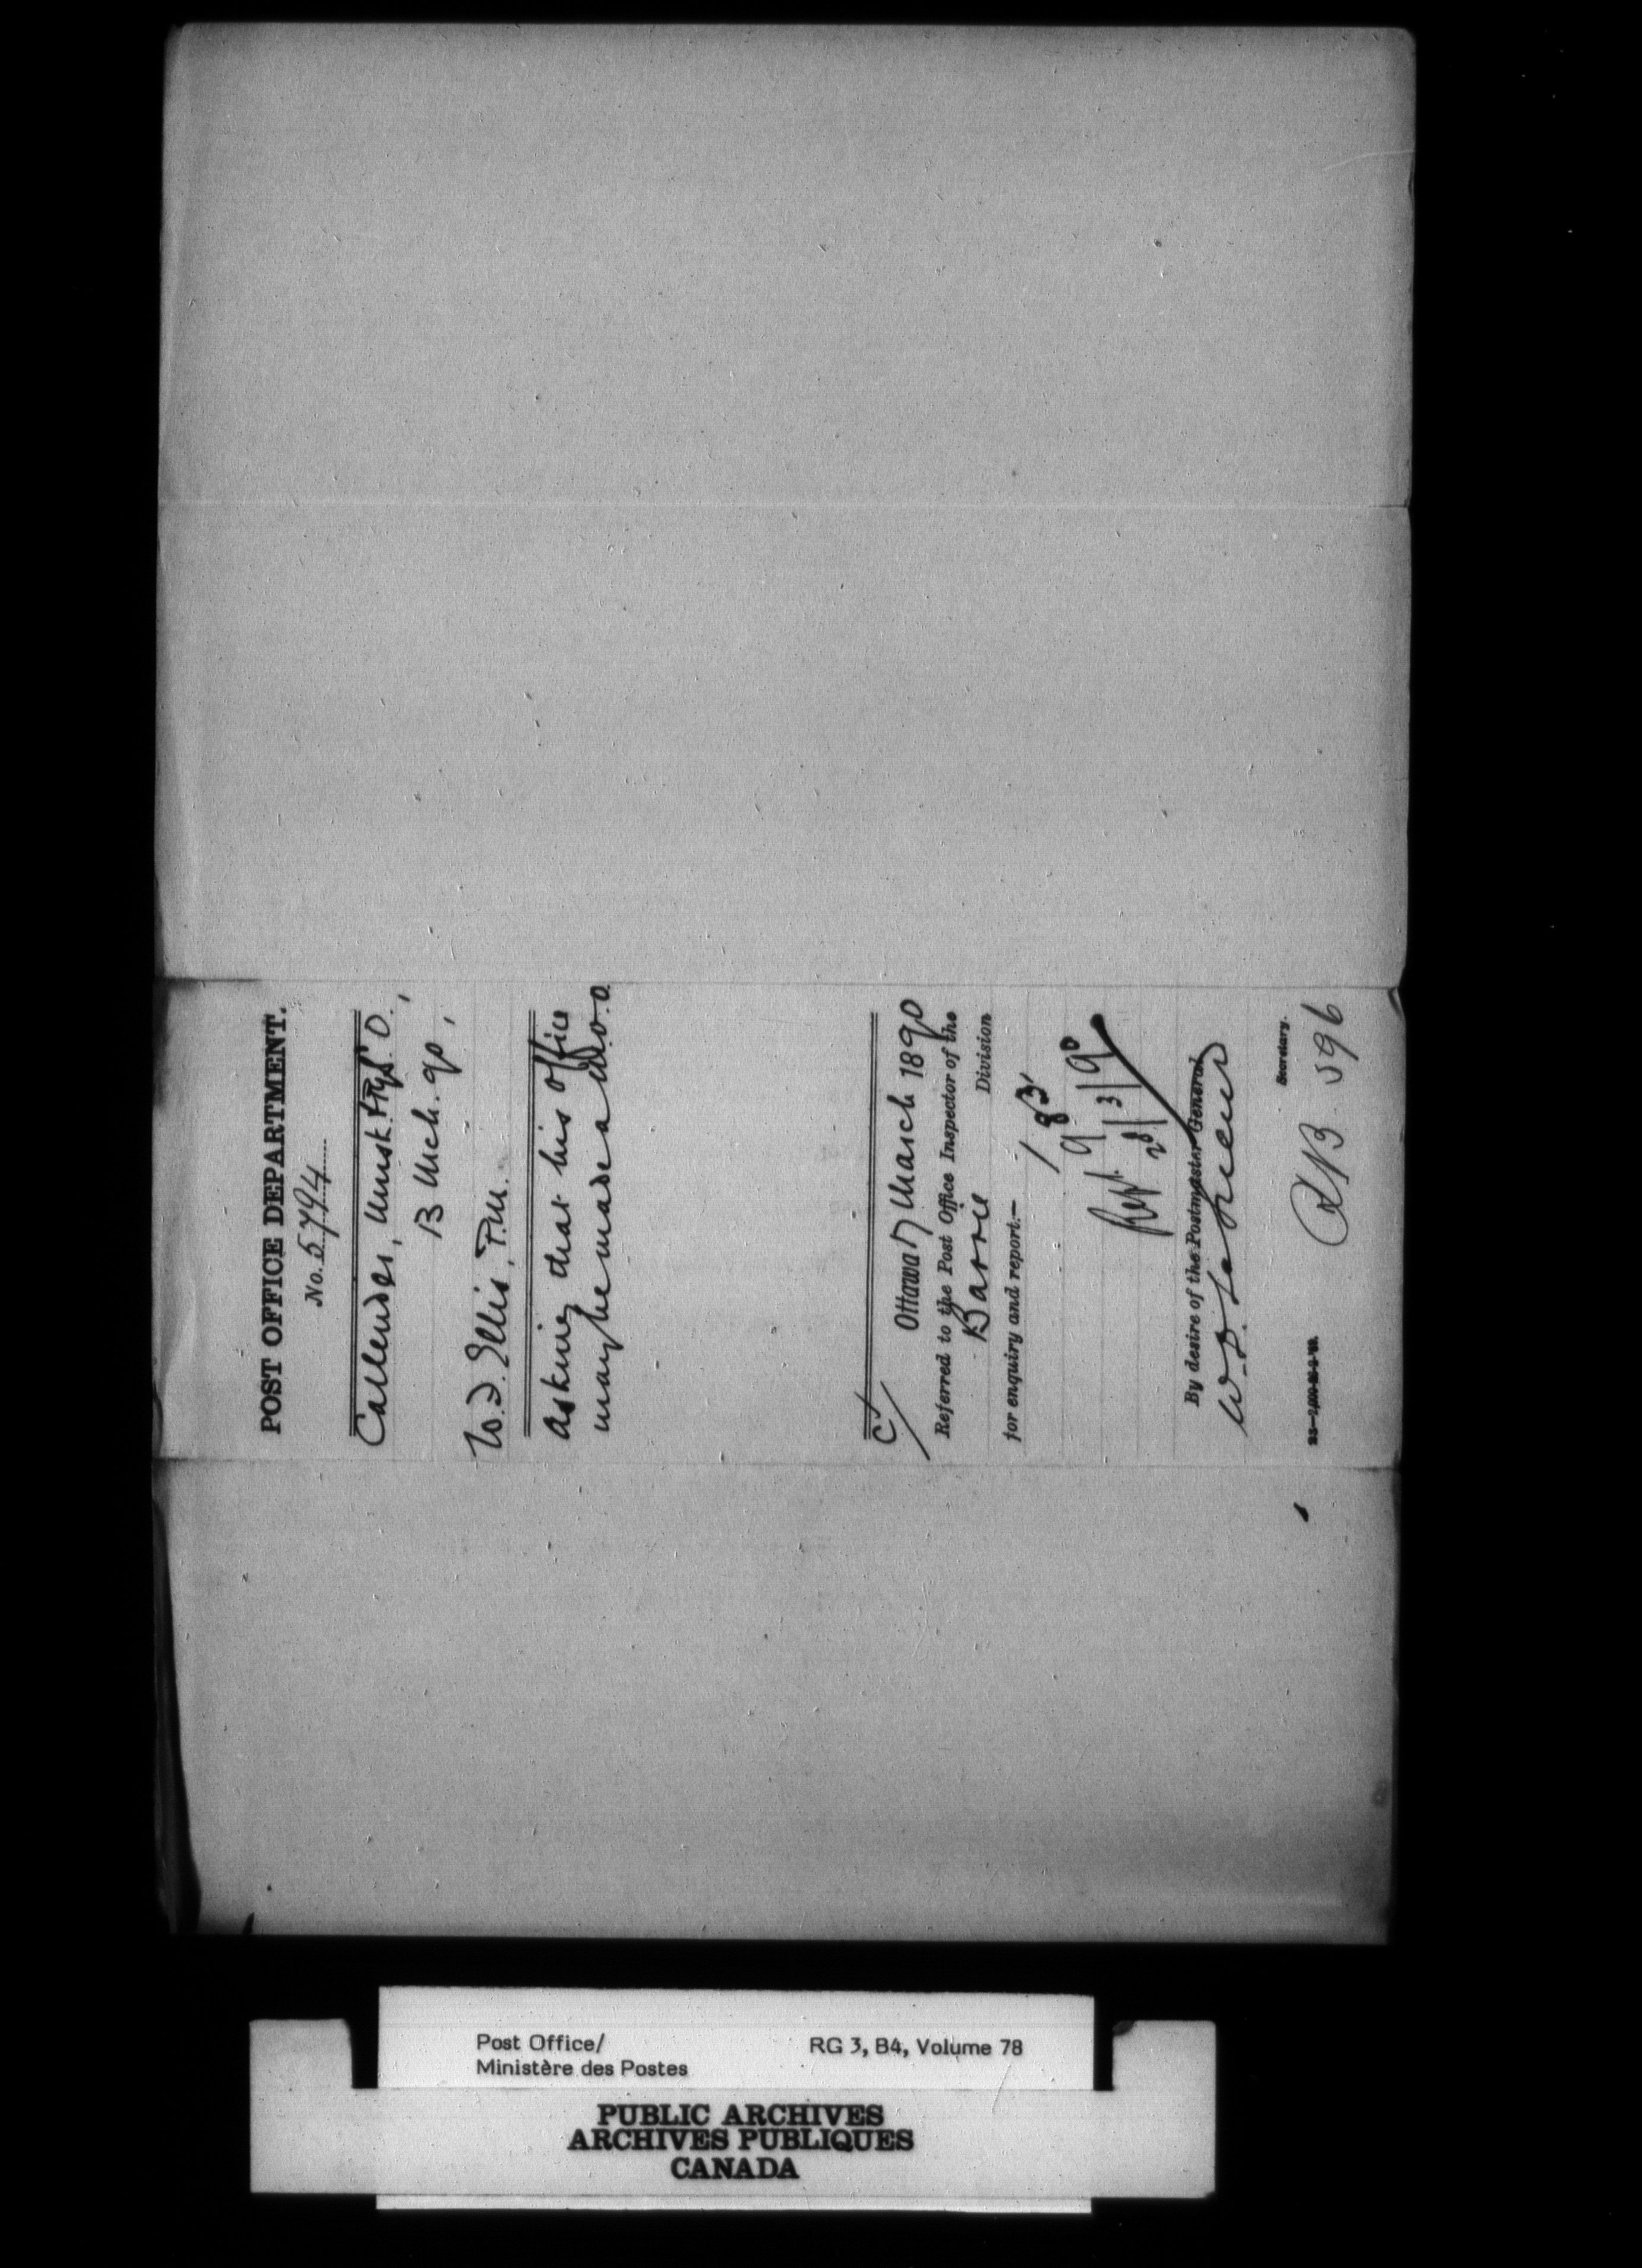 POST OFFICE DEPARTMENT.
No. 5794
Callender, Musk. & P.S. O.,
B Mch. 90,
W. J. Ellis, P.M.
asking that his office
may be made a M.O.O.
C/
Ottawa 7 March 1890
Referred to the Post Office Inspector of the
Barrie Division
for enquiry and report.—
Rept.
28/3/90
By desire of the Postmaster General
Secretary.
596
Post Office/ RG 3, B4, Volume 78
Ministère des Postes
PUBLIC ARCHIVES
ARCHIVES PUBLIQUES
CANADA